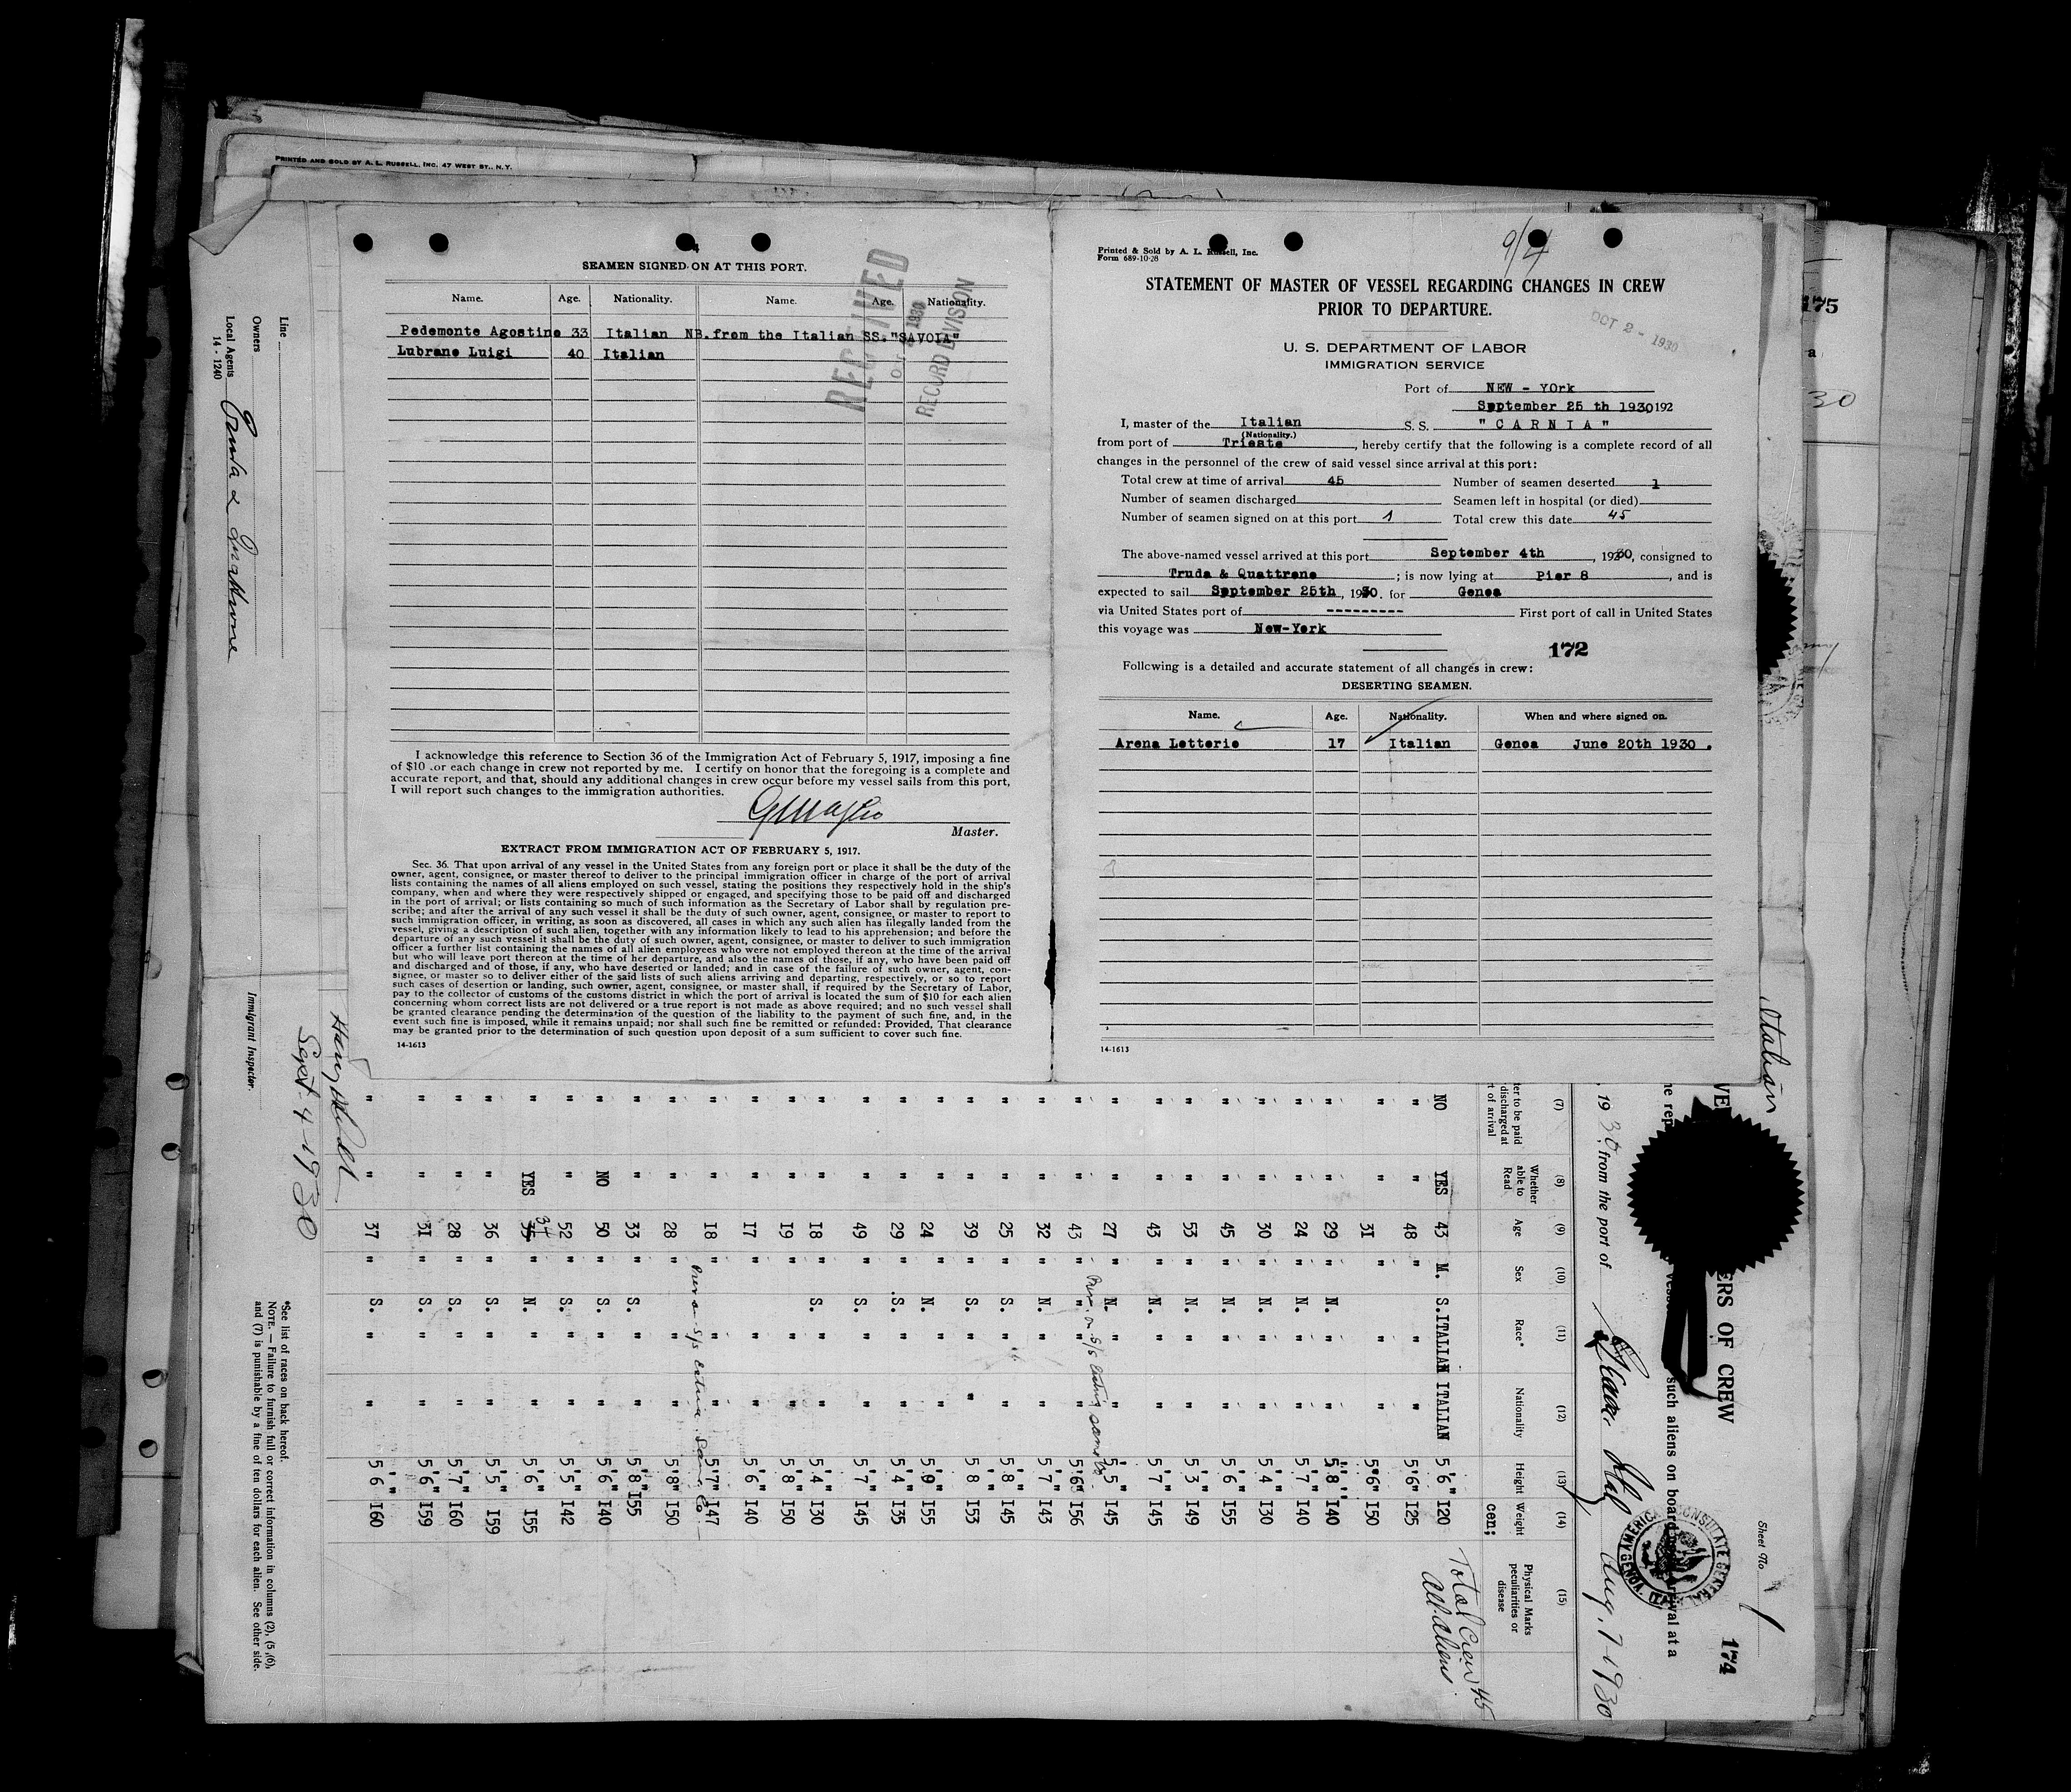 PRINTED AND SOLD BY A. L. RUSSELL, INC. 47 WEST ST., N.Y.
4
SEAMEN SIGNED ON AT THIS PORT.
Name. Age. Nationality. Name. Age. Nationality.
Pedemonte Agostino 33 Italian NB.from the Italian SS."SAVOIA"
Lubrano Luigi 40 Italian
RECEIVED
1930
RECORD DIVISION
I acknowledge this reference to Section 36 of the Immigration Act of February 5, 1917, imposing a fine
of $10 .or each change in crew not reported by me. I certify on honor that the foregoing is a complete and
accurate report, and that, should any additional changes in crew occur before my vessel sails from this port,
I will report such changes to the immigration authorities.
Master.
EXTRACT FROM IMMIGRATION ACT OF FEBRUARY 5, 1917.
Sec. 36. That upon arrival of any vessel in the United States from any foreign port or place it shall be the duty of the
owner, agent, consignee, or master thereof to deliver to the principal immigration officer in charge of the port of arrival
lists containing the names of all aliens employed on such vessel, stating the positions they respectively hold in the ship's
company, when and where they were respectively shipped or engaged, and specifying those to be paid off and discharged
in the port of arrival; or lists containing so much of such information as the Secretary of Labor shall by regulation pre-
scribe; and after the arrival of any such vessel it shall be the duty of such owner, agent, consignee, or master to report to
such immigration officer, in writing, as soon as discovered, all cases in which any such alien has illegally landed from the
vessel, giving a description of such alien, together with any information likely to lead to his apprehension; and before the
departure of any such vessel it shall be the duty of such owner, agent, consignee, or master to deliver to such immigration
officer a further list containing the names of all alien employees who were not employed thereon at the time of the arrival
but who will leave port thereon at the time of her departure, and also the names of those, if any, who have been paid off
and discharged and of those, if any, who have deserted or landed; and in case of the failure of such owner, agent, con-
signee, or master so to deliver either of the said lists of such aliens arriving and departing, respectively, or so to report
such cases of desertion or landing, such owner, agent, consignee, or master shall, if required by the Secretary of Labor,
pay to the collector of customs of the customs district in which the port of arrival is located the sum of $10 for each alien
concerning whom correct lists are not delivered or a true report is not made as above required; and no such vessel shall
be granted clearance pending the determination of the question of the liability to the payment of such fine, and, in the
event such fine is imposed, while it remains unpaid; nor shall such fine be remitted or refunded: Provided, That clearance
may be granted prior to the determination of such question upon deposit of a sum sufficient to cover such fine.
14-1613
9/4
Printed & Sold by A. L. Russell, Inc.
Form 689-10-28
STATEMENT OF MASTER OF VESSEL REGARDING CHANGES IN CREW
PRIOR TO DEPARTURE.
OCT 2 - 1930
U. S. DEPARTMENT OF LABOR
IMMIGRATION SERVICE
Port of NEW - YOrk
September 25 th 1930 192
I, master of the Italian S.S. " C A R N I A "
(Nationality.)
from port of Trieste, hereby certify that the following is a complete record of all
changes in the personnel of the crew of said vessel since arrival at this port:
Total crew at time of arrival 45 Number of seamen deserted 1
Number of seamen discharged Seamen left in hospital (or died)
Number of seamen signed on at this port 1 Total crew this date 45
The above-named vessel arrived at this port September 4th, 1930, consigned to
Truda & Quattrone; is now lying at Pier 8, and is
expected to sail September 25th, 1930. for Genoa
via United States port of --------- First port of call in United States
this voyage was New-York
172
Following is a detailed and accurate statement of all changes in crew:
DESERTING SEAMEN.
Name. Age. Nationality. When and where signed on.
Arena Letterio 17 Italian Genoa June 20th 1930 .
14-1613
175
a
30
Italian
Sheet No. 1
174
ERS OF CREW
such aliens on board
rival at a
AMERICAN CONSULATE GENERAL
GENOA
, 1930 from the port of Aug. 7-1930
(7) (8) (9) (10) (11) (12) (13) (14) (15)
ter to be paid
discharged at
t of arrival
Whether
able to
Read
Age
Sex
Race*
Nationality
Height
Weight
Physical Marks
peculiarities or
disease
cen;
NO YES 43 M. S.ITALIAN ITALIAN 5'6" I20
Total Crew 45
All Aliens
" " 48 " " " 5'6" I25
" " 3I " " " 5'6" I50
" " 29 " N. " " 5'8" I40
" " 24 " N. " " 5'7" I40
" " 30 " N. " " 5'4" I30
" " 45 " N. " " 5'6" I55
" " 53 " N. " " 5'3" I49
" " 43 " N. " " 5'7" I45
" " 27 " N. " " 5'5" I45
" " 43 " " " " 5'6" I56
" " 32 " N. " " 5'7" I43
" " 25 " S. " " 5'8" I45
" " 39 " S. " " 5'8" I53
" " 24 " N. " " 5'9" I55
" " 29 " S. " " 5'4" I35
" " 49 " S. " " 5'7" I45
" " I8 " S. " " 5'4" I30
" " I9 " " " 5'8" I50
" " I7 " " " 5'6" I40
" " I8 " " " 5'7" I47
" " 28 " " " 5'8" I50
" " 33 " S. " " 5'8" I55
" NO 50 " S. " " 5'6" I40
" " 52 " S. " " 5'5" I42
" YES 35 34 " N. " " 5'6" I55
" " 36 " S. " " 5'5" I59
" " 28 " S. " " 5'7" I60
" " 3I " S. " " 5'6" I59
" " 37 " S. " " 5'6" I60
Sept. 4-1930
Immigrant Inspector.
Line
Owners
Local Agents Truda & Quattrone
14-1240
*See list of races on back hereof.
NOTE. — Failure to furnish full or correct information in columns (2), (5, (6),
and (7) is punishable by a fine of ten dollars for each alien. See other side.